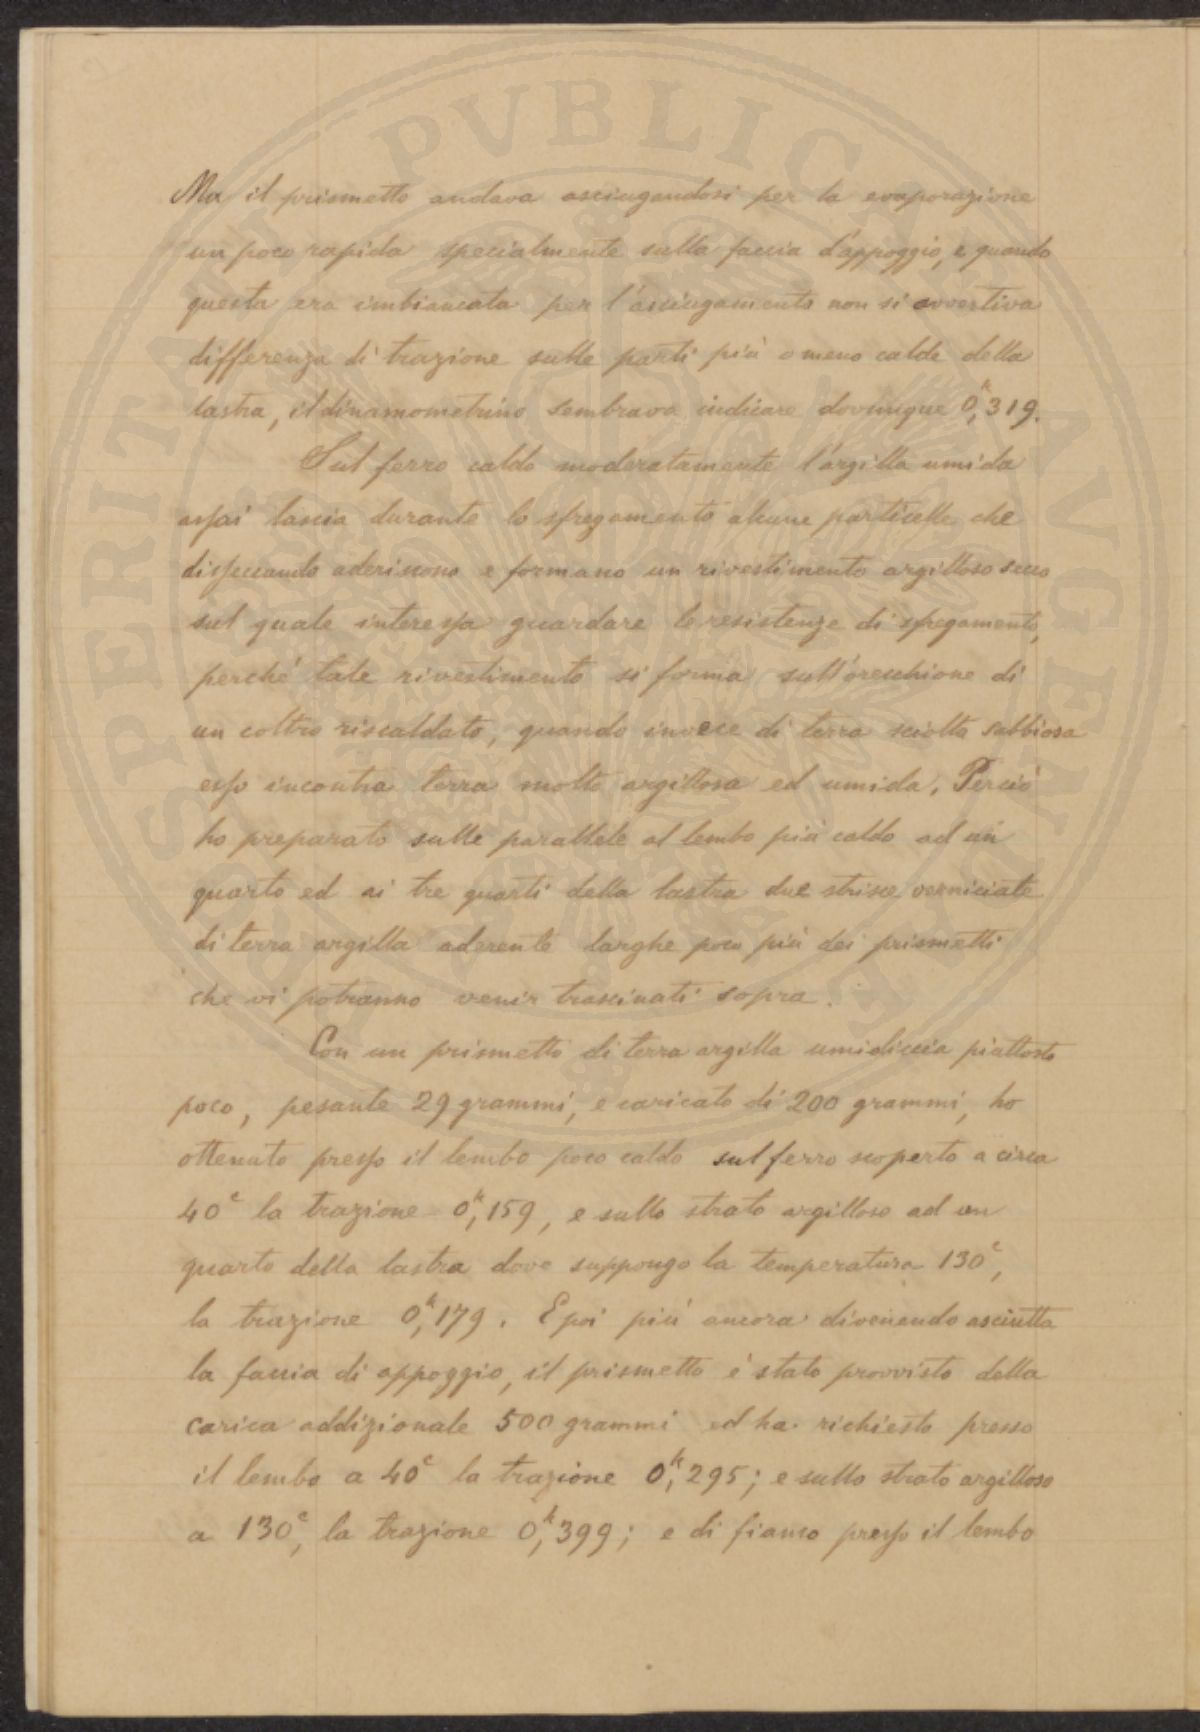 Ma il prismetto andava asciugandosi per la evaporazione
un poco rapida specialmente sulla faccia d'appoggio, e quando
questa era imbiancata per l'asciugamento non si avvertiva
differenza di trazione sulle parti più o meno calde della
lastra, il dinamometrino sembrava indicare dovunque 0,ᵏ319.
Sul ferro caldo moderatamente l'argilla umida
assai lascia durante lo sfregamento alcune particelle che
disseccando aderiscono e formano un rivestimento argilloso secco
sul quale interessa guardare le resistenze di sfregamento,
perché tale rivestimento si forma sull'orecchione di
un coltro riscaldato, quando invece di terra sciolta sabbiosa
esso incontra terra molto argillosa ed umida. Perciò
ho preparato sulle parallele al lembo più caldo ad un
quarto ed ai tre quarti della lastra due strisce verniciate
di terra argilla aderente larghe poco più dei prismetti
che vi potranno venir trascinati sopra.
Con un prismetto di terra argilla umidiccia piuttosto
poco, pesante 29 grammi, e caricato di 200 grammi, ho
ottenuto presso il lembo poco caldo sul ferro scoperto a circa
40ᶜ la trazione 0,ᵏ159, e sullo strato argilloso ad un
quarto della lastra dove suppongo la temperatura 130ᶜ,
la trazione 0,ᵏ179. E poi più ancora divenendo asciutta
la faccia di appoggio, il prismetto è stato provvisto della
carica addizionale 500 grammi ed ha richiesto presso
il lembo a 40ᶜ la trazione 0,ᵏ295; e sullo strato argilloso
a 130ᶜ, la trazione 0,ᵏ399; e di fianco presso il lembo